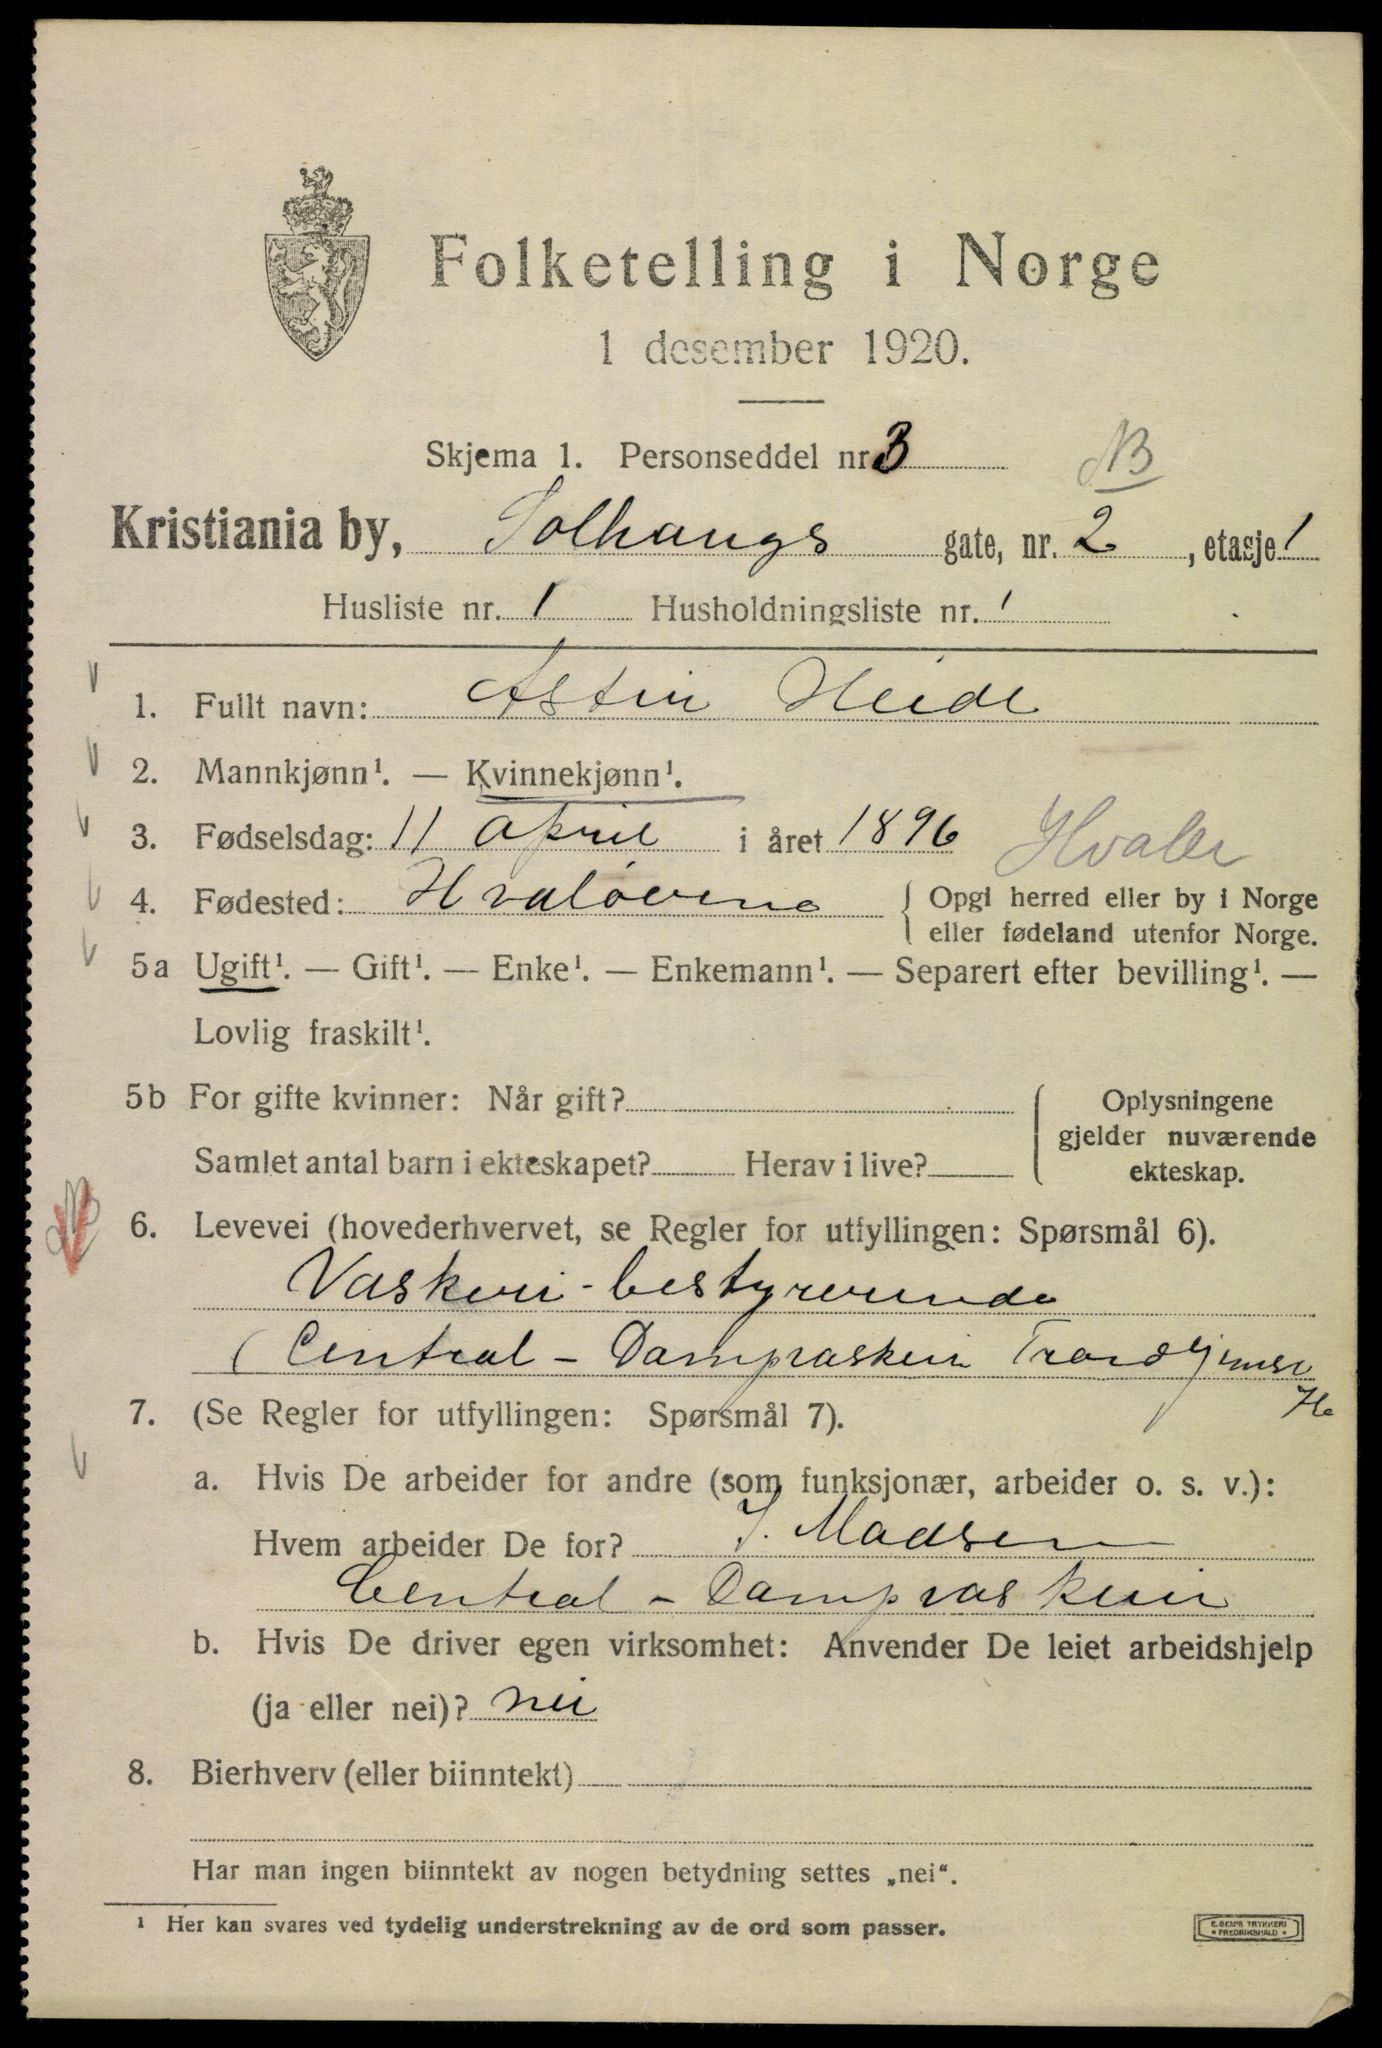 Folketelling i Norge
1 desember 1920.
Skjema 1. Personseddel nr. 3
NB
Kristiania by, Solhaugs gate, nr. 2, etasje 1
Husliste nr. 1 Husholdningsliste nr. 1
1. Fullt navn: Astri Heide
2. Mannkjønn¹. — Kvinnekjønn¹.
3. Fødselsdag: 11 april i året 1896 Hvaler
4. Fødested: Hvaløerne { Opgi herred eller by i Norge
eller fødeland utenfor Norge.
5a Ugift¹. — Gift¹. — Enke¹. — Enkemann¹. — Separert efter bevilling¹. —
Lovlig fraskilt¹.
5b For gifte kvinner: Når gift?
Samlet antal barn i ekteskapet? Herav i live?
{ Oplysningene
gjelder nuværende
ekteskap.
NB
6. Levevei (hovederhvervet, se Regler for utfyllingen: Spørsmål 6).
Vaskeri-bestyrerinde
(Central - Dampvaskeri
7. (Se Regler for utfyllingen: Spørsmål 7).
a. Hvis De arbeider for andre (som funksjonær, arbeider o. s. v.):
Hvem arbeider De for? J. Madsen
Central - Dampvaskeri
b. Hvis De driver egen virksomhet: Anvender De leiet arbeidshjelp
(ja eller nei)? nei
8. Bierhverv (eller biinntekt)
Har man ingen biinntekt av nogen betydning settes „nei“.
¹ Her kan svares ved tydelig understrekning av de ord som passer.
E. SEM'S TRYKKERI
* FREDRIKSHALD *